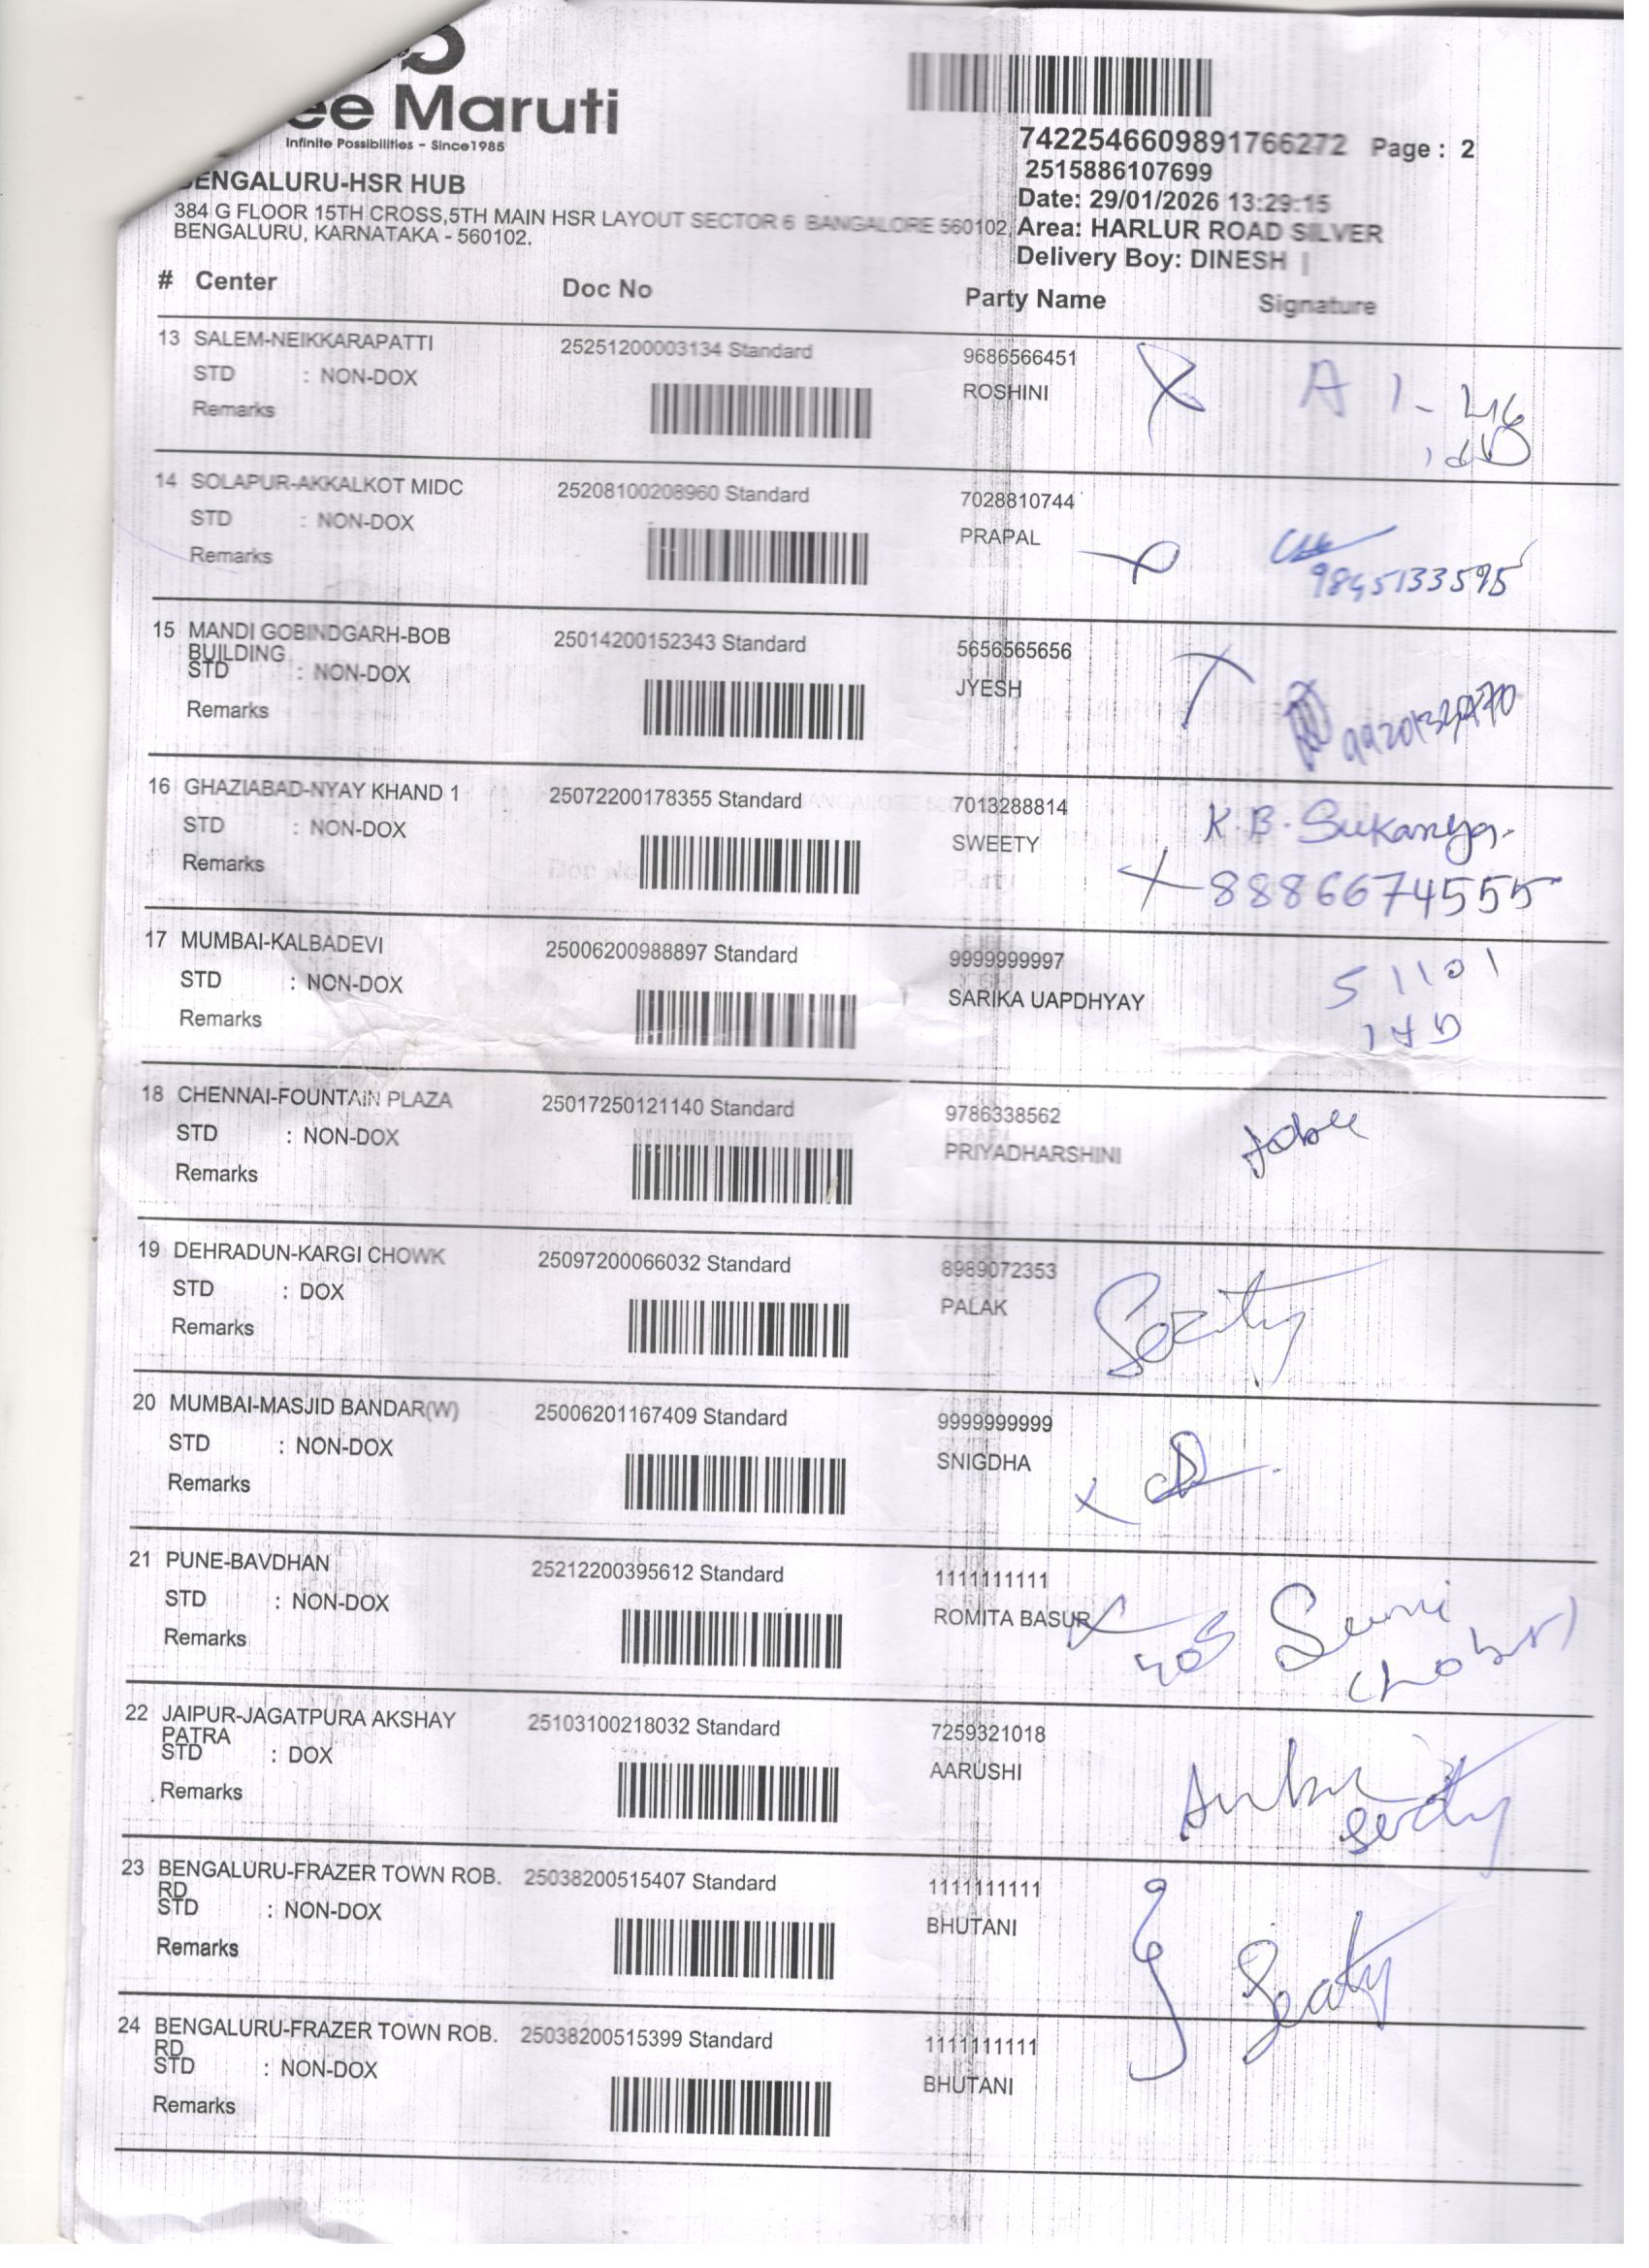 ee Maruti
Infinite Possibilities - Since1985
7422546609891766272 Page : 2
2515886107699
ENGALURU-HSR HUB
Date: 29/01/2026 13:29:15
384 G FLOOR 15TH CROSS,5TH MAIN HSR LAYOUT SECTOR 6 BANGALORE 560102,
Area: HARLUR ROAD SILVER
BENGALURU, KARNATAKA - 560102.
Delivery Boy: DINESH
# Center Doc No Party Name Signature
13 SALEM-NEIKKARAPATTI 25251200003134 Standard 9686566451
STD : NON-DOX ROSHINI A 1-
Remarks
14 SOLAPUR-AKKALKOT MIDC 25208100208960 Standard 7028810744
STD : NON-DOX PRAPAL
Remarks 9845133595
15 MANDI GOBINDGARH-BOB 25014200152343 Standard 5656565656
BUILDING
STD : NON-DOX JYESH
Remarks
16 GHAZIABAD-NYAY KHAND 1 25072200178355 Standard 7013288814 K.B. Sukanya.
STD : NON-DOX SWEETY
Remarks 8886674555
17 MUMBAI-KALBADEVI 25006200988897 Standard 9999999997
STD : NON-DOX SARIKA UAPDHYAY 51101
Remarks
18 CHENNAI-FOUNTAIN PLAZA 25017250121140 Standard 9786338562
STD : NON-DOX PRIYADHARSHINI
Remarks
19 DEHRADUN-KARGI CHOWK 25097200066032 Standard 8989072353
STD : DOX PALAK
Remarks
20 MUMBAI-MASJID BANDAR(W) 25006201167409 Standard 9999999999
STD : NON-DOX SNIGDHA
Remarks
21 PUNE-BAVDHAN 25212200395612 Standard 1111111111
STD : NON-DOX ROMITA BASUR
Remarks
22 JAIPUR-JAGATPURA AKSHAY 25103100218032 Standard 7259321018
PATRA
STD : DOX AARUSHI
Remarks
23 BENGALURU-FRAZER TOWN ROB. 25038200515407 Standard 1111111111
RD
STD : NON-DOX BHUTANI
Remarks
24 BENGALURU-FRAZER TOWN ROB. 25038200515399 Standard 1111111111
RD
STD : NON-DOX BHUTANI
Remarks